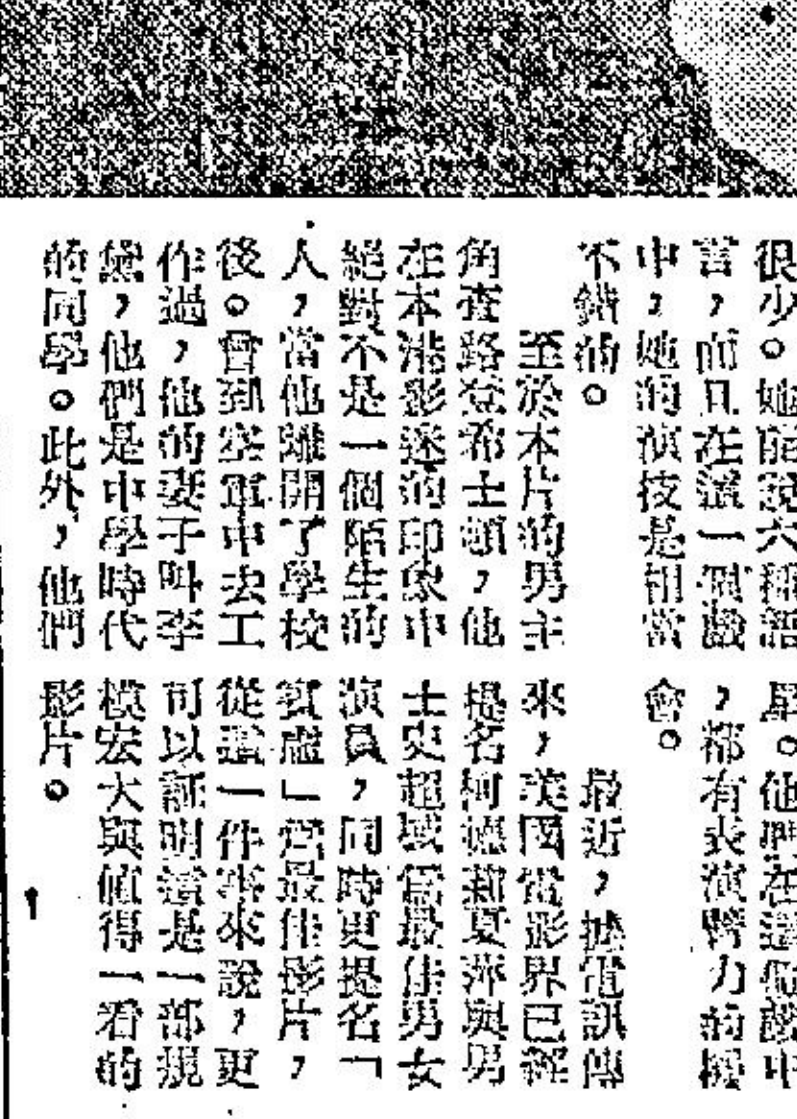 很少。她能說六種語
言,而且在這一個戲
中,她的演技是相當
不錯的。
至於本片的男主
角查路登希士頓,他
在本港影迷的印象中
絕對不是一個陌生的
人,當他離開了學校
後。曾到空軍中去工
作過,他的妻子叫李
黛,他們是中學時代
的同學。此外,他們
星。他們在這個戲中
,都有表演臂力的機
會。
最近,據電訊傳
來,美國電影界已經
提名柯德莉夏萍與男
士史超域為最佳男女
演員,同時更提名「
賓虛」為最佳影片,
從這一件事來說,更
可以証明這是一部規
模宏大與值得一看的
影片。